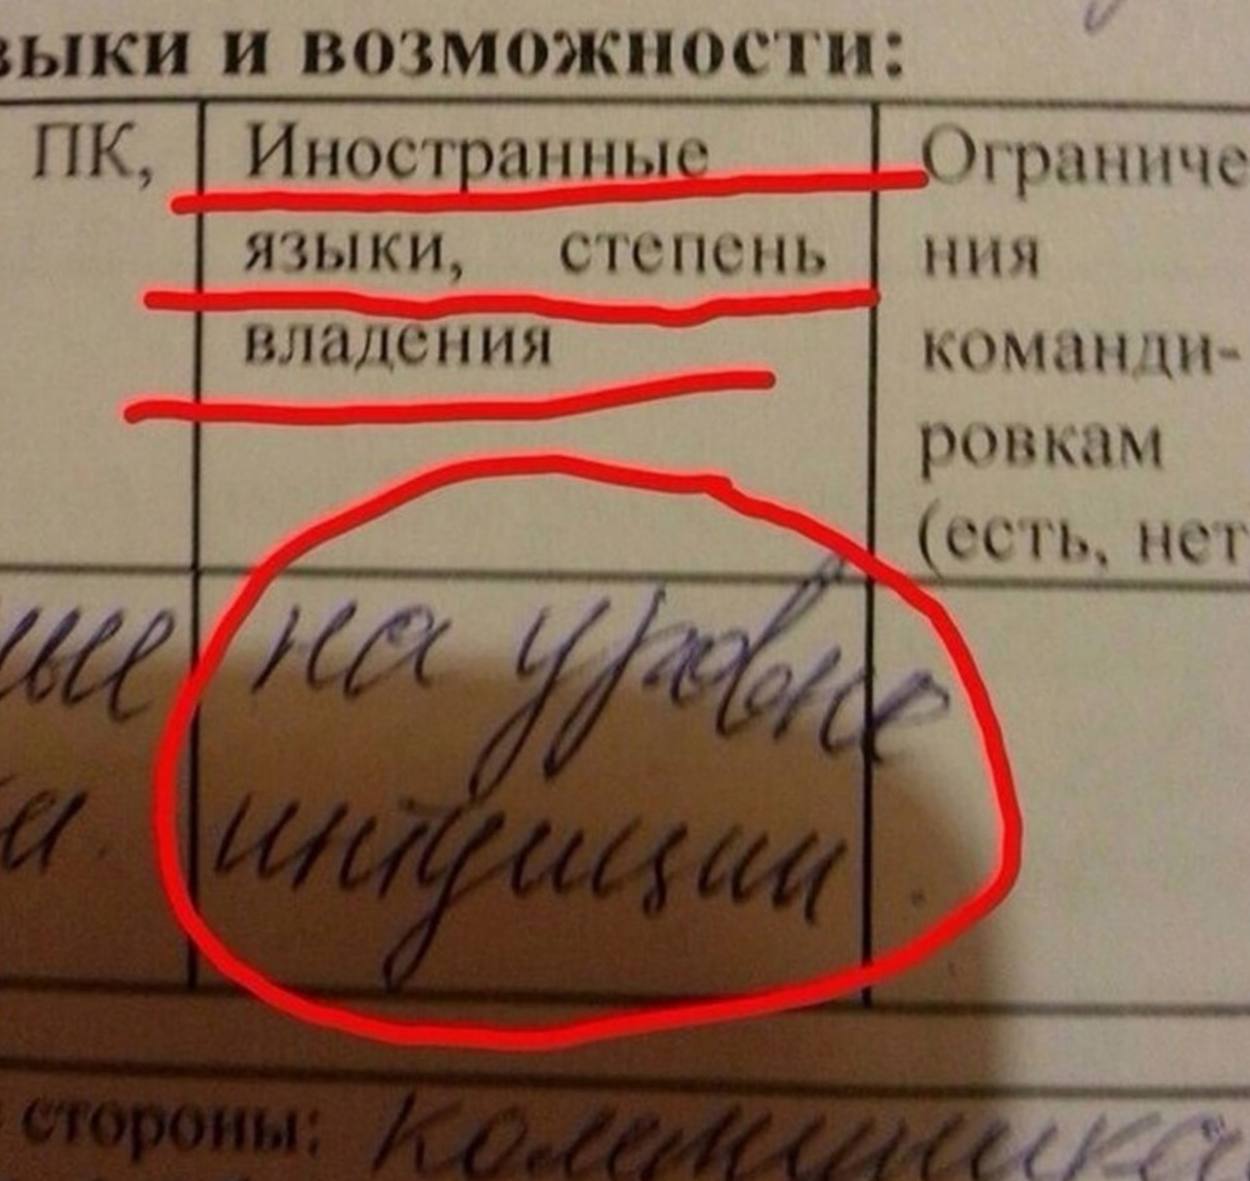 выки и возможности:
ПК,
Иностранные
языки, степень
владения
Ограниче
ния
команди-
ровкам
(есть, нет
ные
на уровне
интуиции
стороны: